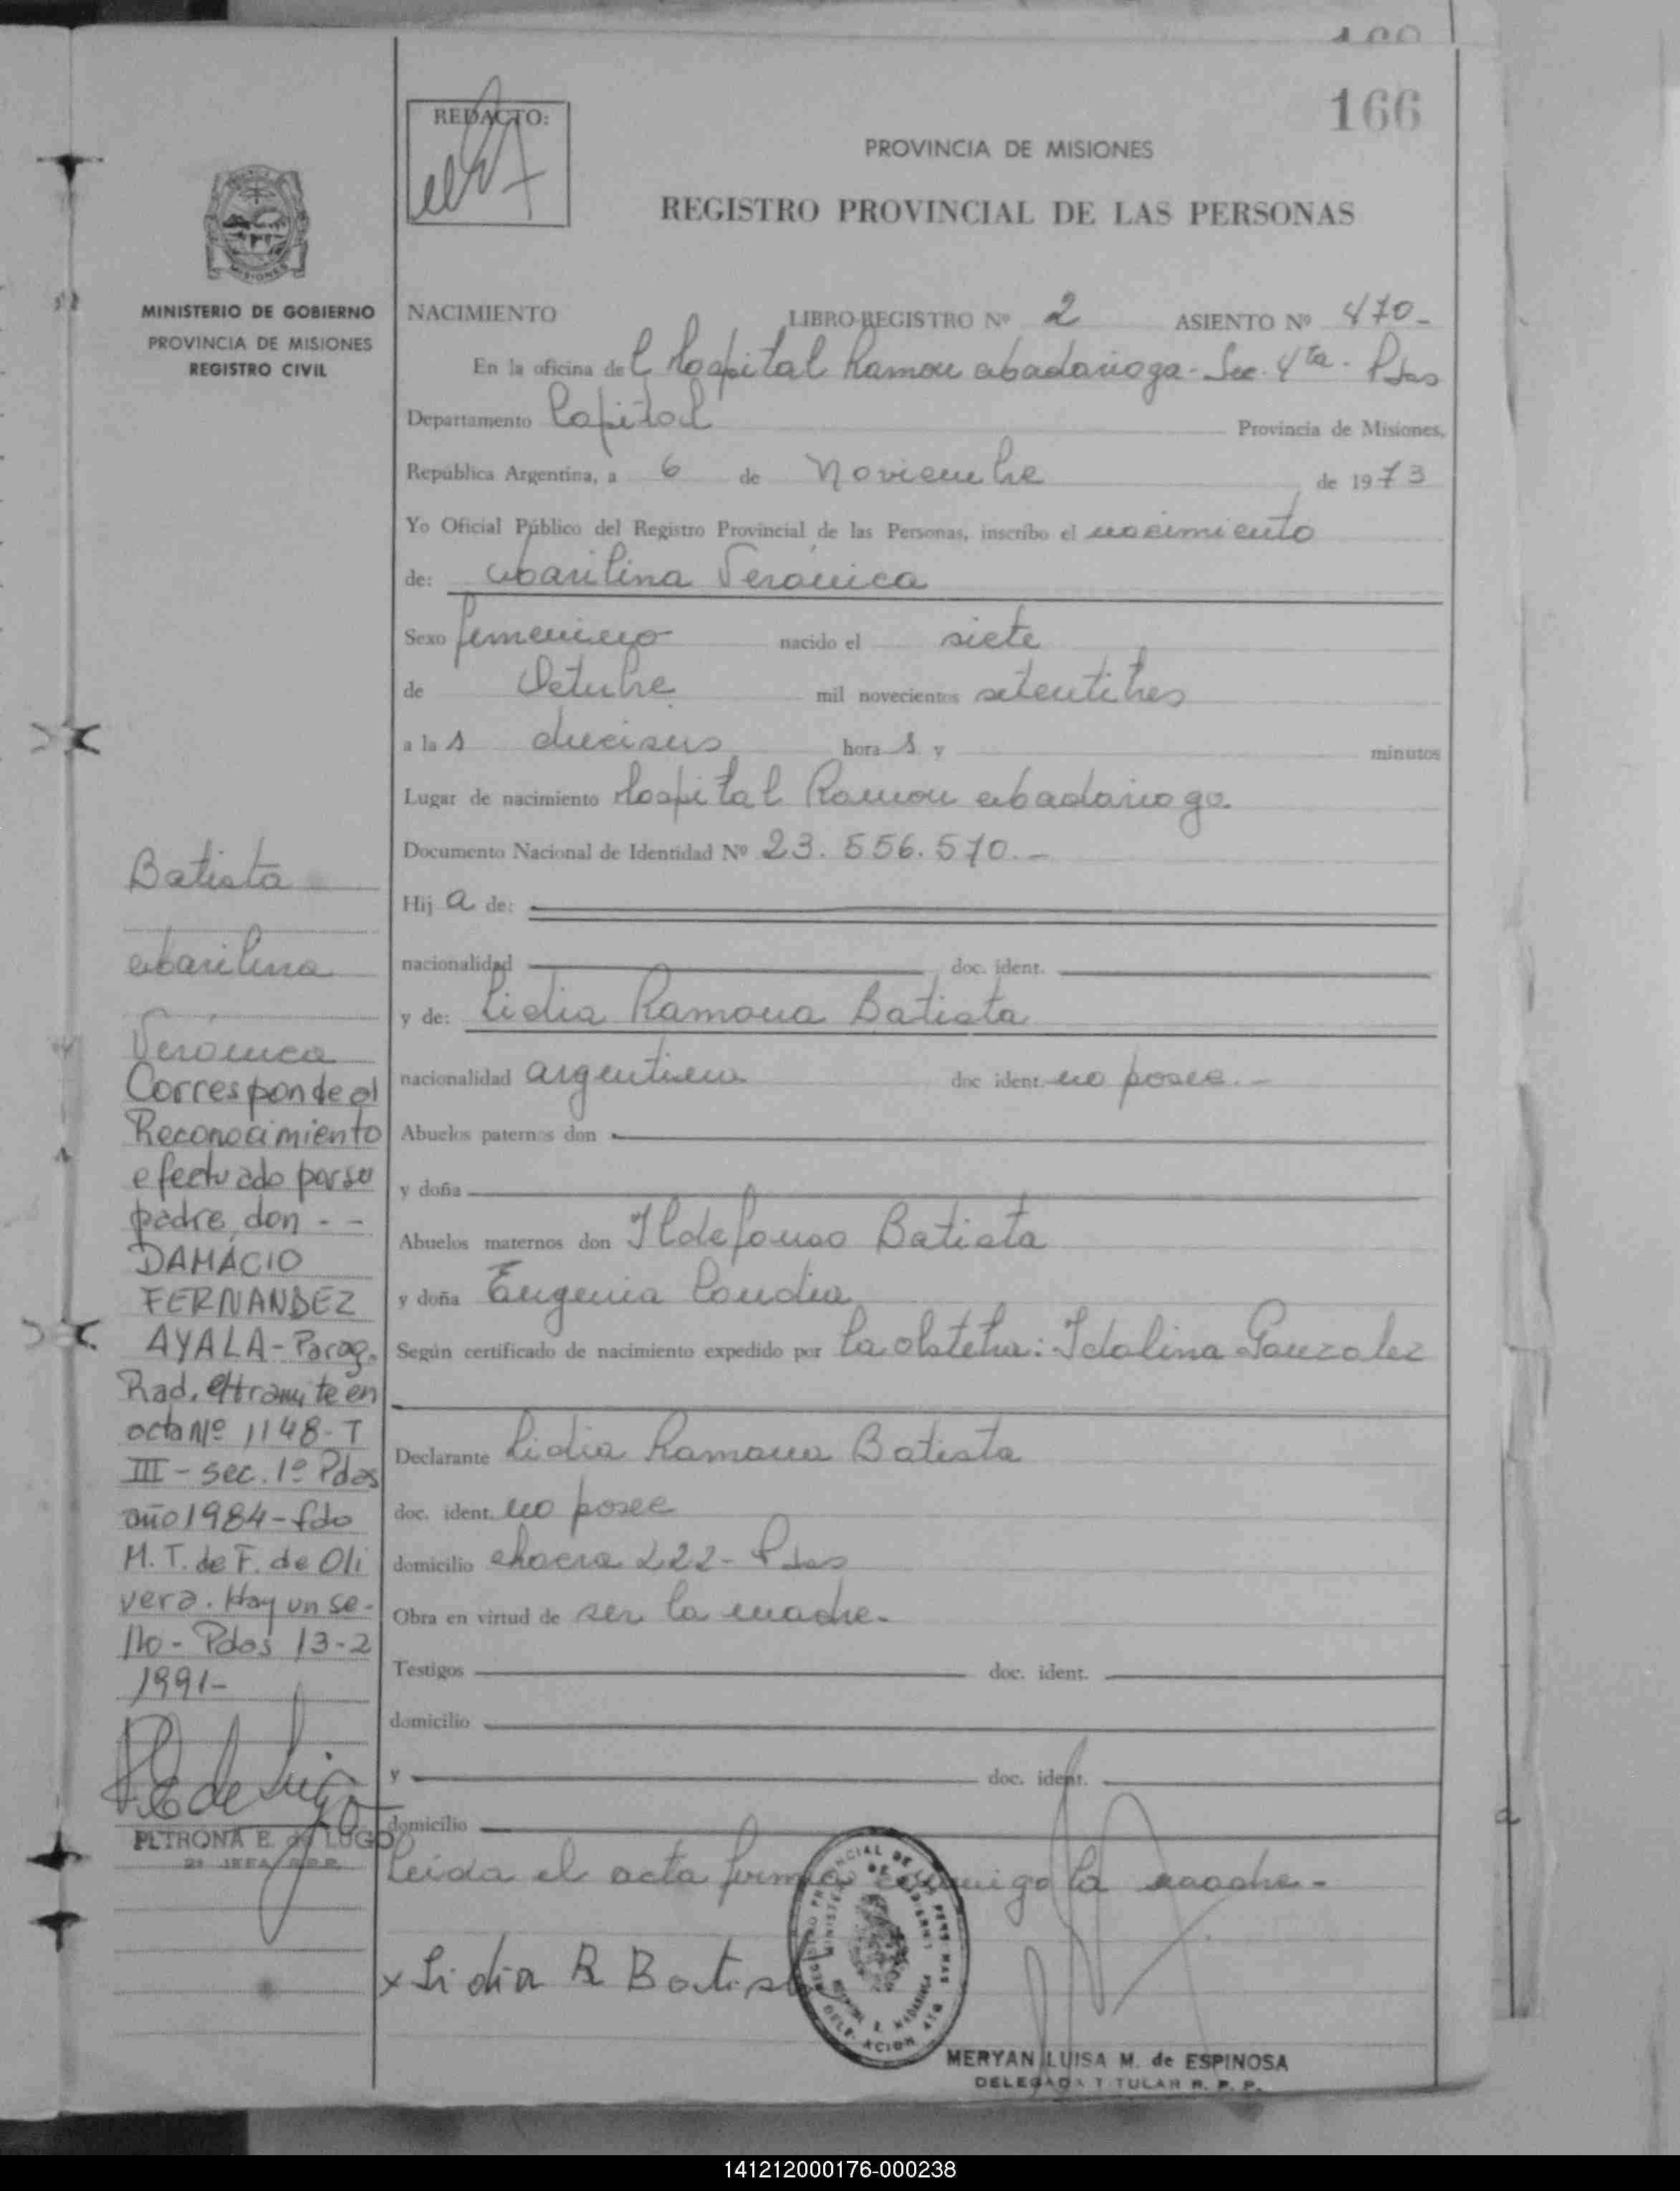 166
REDACTO:
PROVINCIA DE MISIONES
REGISTRO PROVINCIAL DE LAS PERSONAS
MINISTERIO DE GOBIERNO
PROVINCIA DE MISIONES
REGISTRO CIVIL
NACIMIENTO LIBRO-REGISTRO Nº 2 ASIENTO Nº 470-
En la oficina del Hospital Ramon Madariaga - Sec. 4ta - Pdas
Departamento Capital Provincia de Misiones,
República Argentina, a 6 de Noviembre de 1973
Yo Oficial Público del Registro Provincial de las Personas, inscribo el nacimiento
de: Marilina Veronica
Sexo femenino nacido el siete
de Octubre mil novecientos setentitres
a la s dieciseis hora s y minutos
Lugar de nacimiento Hospital Ramon Madariaga
Documento Nacional de Identidad Nº 23.556.570.-
Hij a de:
nacionalidad doc. ident.
y de: Lidia Ramona Batista
nacionalidad argentina doc ident. no posee.-
Abuelos paternos don
y doña
Abuelos maternos don Ildefonso Batista
y doña Eugenia
Según certificado de nacimiento expedido por la obstetra: Idalina Gonzalez
Declarante Lidia Ramona Batista
doc. ident. no posee
domicilio chacra 222- Pdas
Obra en virtud de ser la madre.
Testigos doc. ident.
domicilio
y doc. ident.
domicilio
Leida el acta firma conmigo la madre.-
x Lidia R Batista
MERYAN LUISA M. de ESPINOSA
DELEGADA TITULAR R. P. P.
Batista
Marilina
Veronica
Corresponde al
Reconocimiento
efectuado por su
padre, don - -
DAMACIO
FERNANDEZ
AYALA - Parag.
Rad. el tramite en
acta Nº 1148- T
III - sec. 1º Pdas
año 1984 - fdo
M. T. de F. de Oli
vera. Hay un se-
llo - Pdas 13-2
1991-
PETRONA E. de LUGO
2º JEFA R.P.P.
141212000176-000238